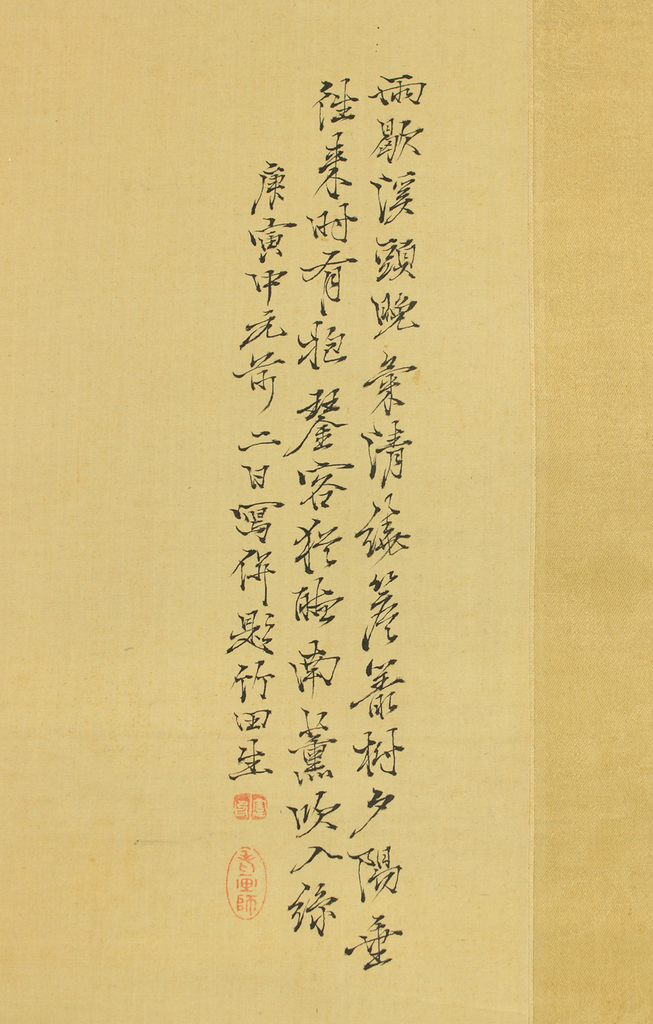 雨歇溪頭晩氣清繞簷叢樹夕陽垂
往來時有抱琴客猶聽南薰吹入絲
庚寅中元前二日寫併題竹田生
画師